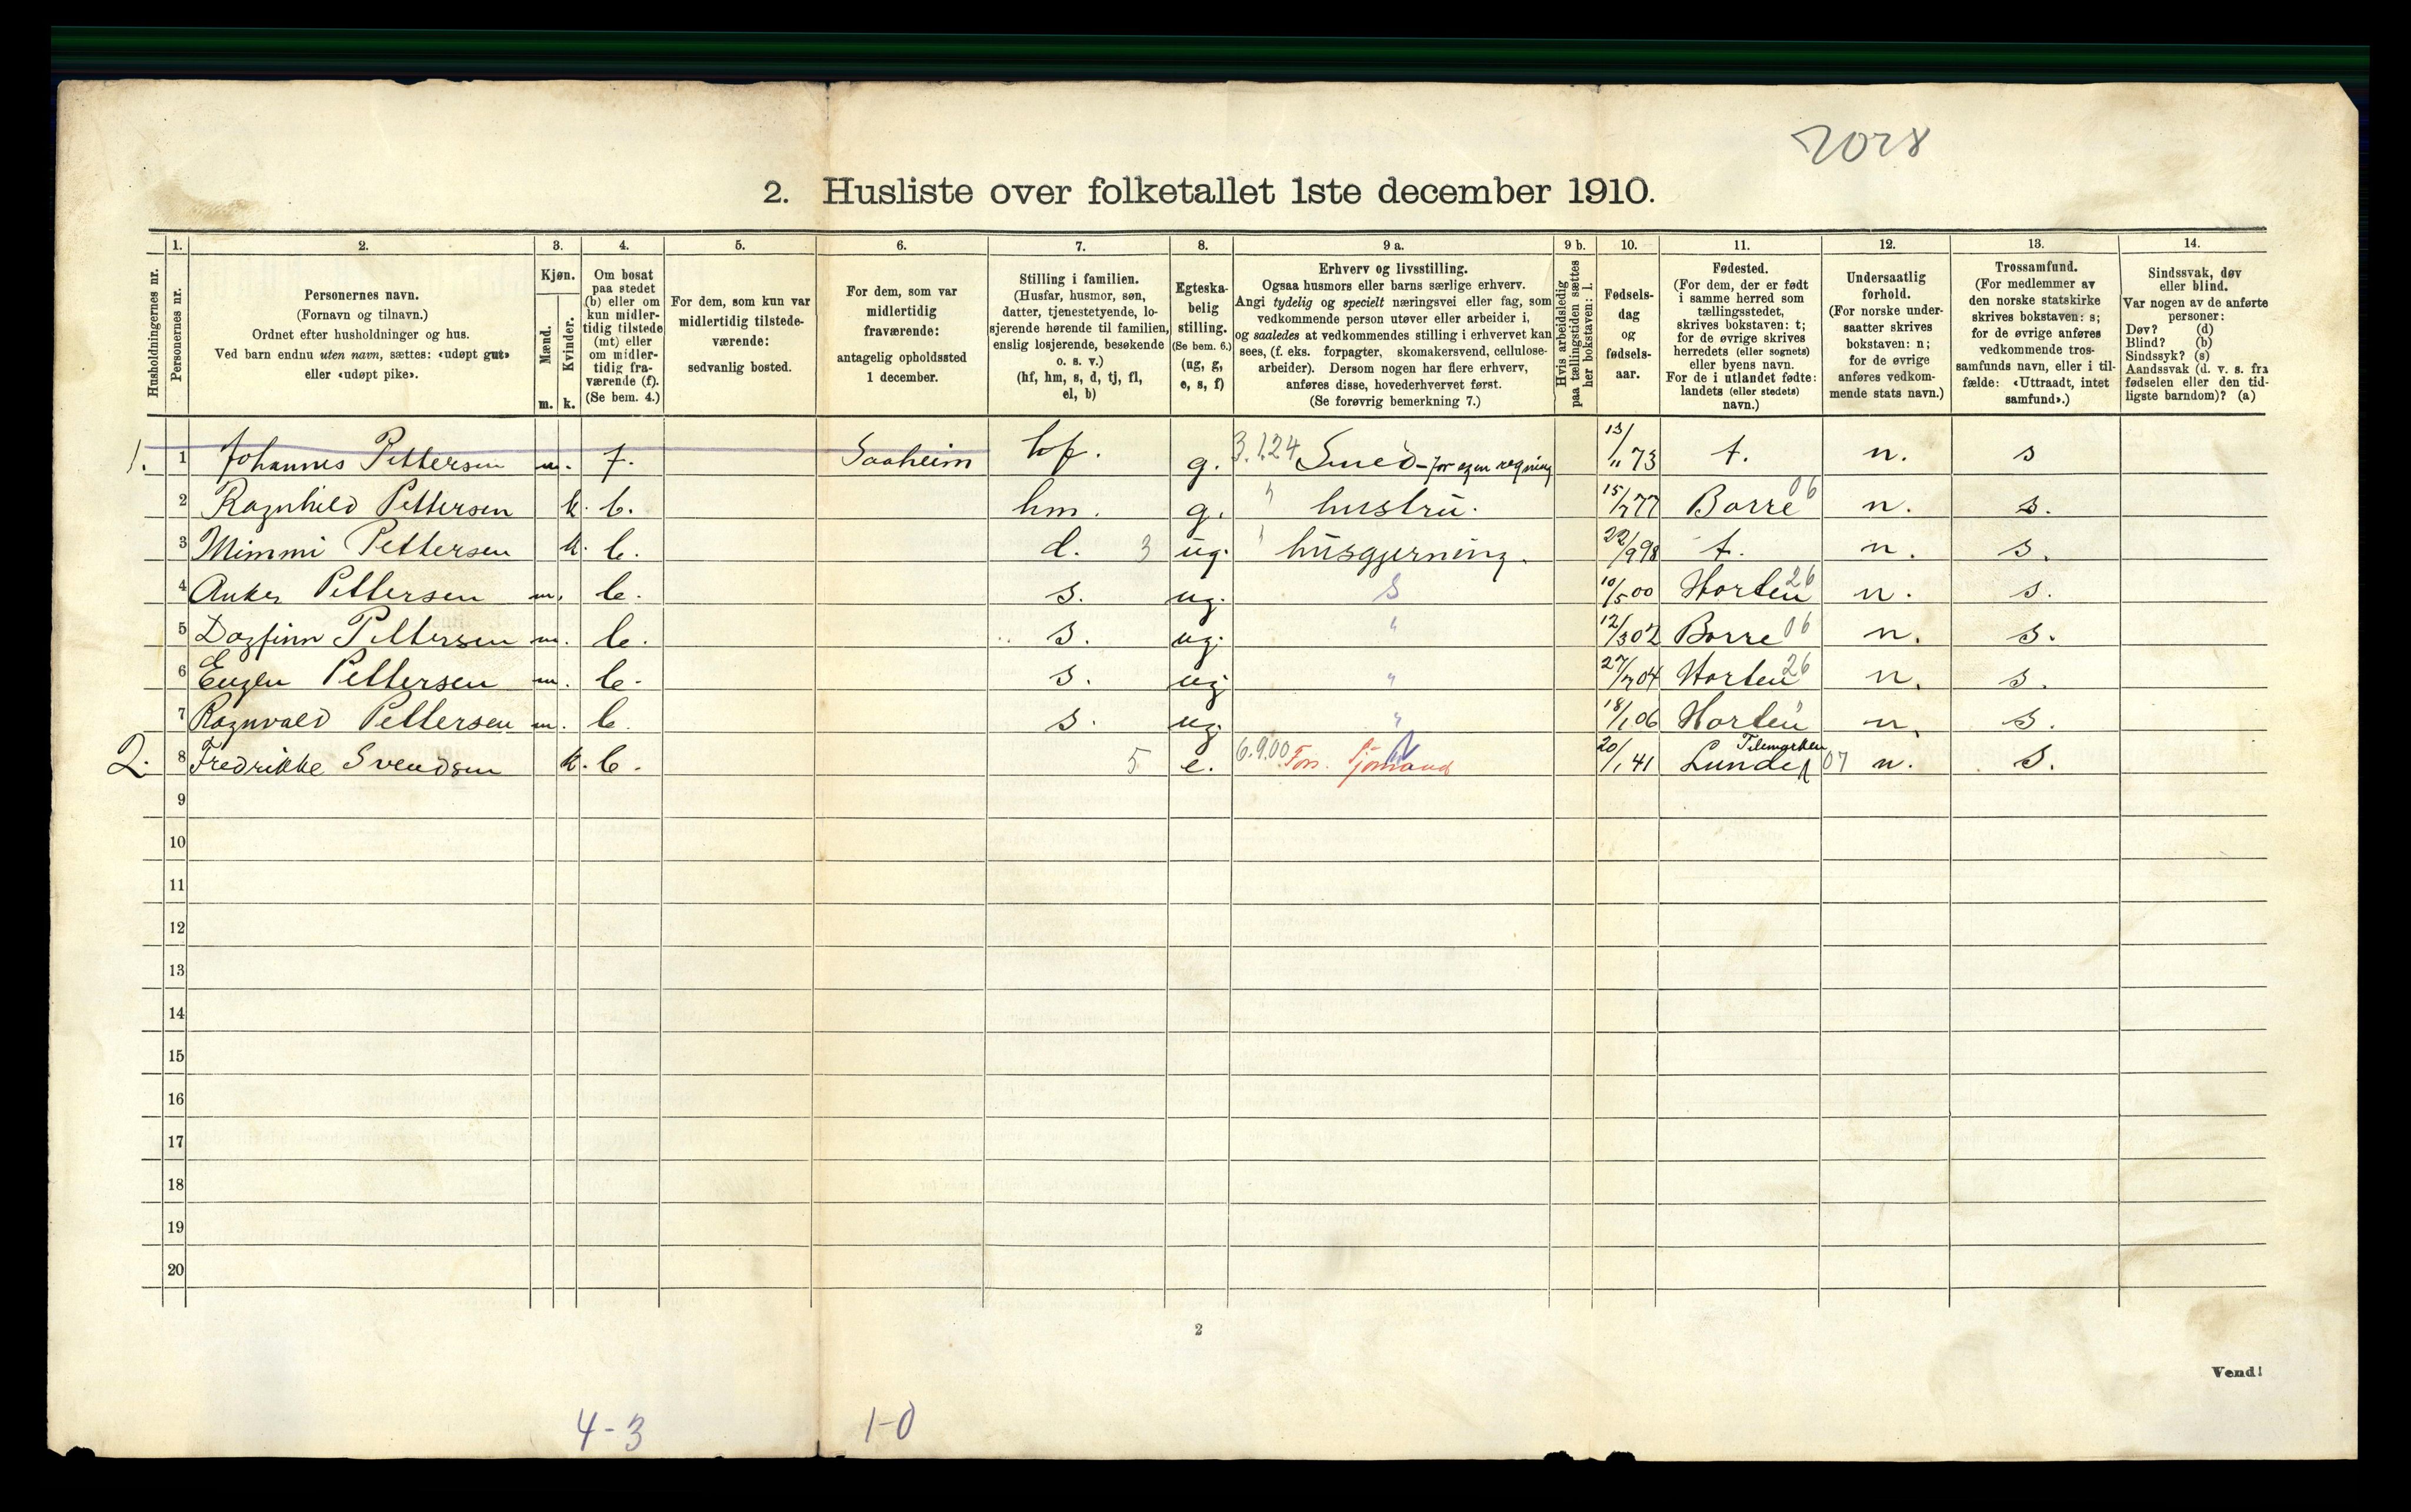 2028
2. Husliste over folketallet 1ste december 1910.
Husholdningernes nr.
1.
Personernes nr.
2.
Personernes navn.
(Fornavn og tilnavn.)
Ordnet efter husholdninger og hus.
Ved barn endnu uten navn, sættes: «udøpt gut»
eller «udøpt pike».
3.
Kjøn.
Mænd.
Kvinder.
m. k.
4.
Om bosat
paa stedet
(b) eller om
kun midler-
tidig tilstede
(mt) eller
om midler-
tidig fra-
værende (f).
(Se bem. 4.)
5.
For dem, som kun var
midlertidig tilstede-
værende:
sedvanlig bosted.
6.
For dem, som var
midlertidig
fraværende:
antagelig opholdssted
1 december.
7.
Stilling i familien.
(Husfar, husmor, søn,
datter, tjenestetyende, lo-
sjerende hørende til familien,
enslig losjerende, besøkende
o. s. v.)
(hf, hm, s, d, tj, fl,
el, b)
8.
Egteska-
belig
stilling.
(Se bem. 6.)
(ug, g,
e, s, f)
9 a.
Erhverv og livsstilling.
Ogsaa husmors eller barns særlige erhverv.
Angi tydelig og specielt næringsvei eller fag, som
vedkommende person utøver eller arbeider i,
og saaledes at vedkommendes stilling i erhvervet kan
sees, (f. eks. forpagter, skomakersvend, cellulose-
arbeider). Dersom nogen har flere erhverv,
anføres disse, hovederhvervet først.
(Se forøvrig bemerkning 7.)
9 b.
Hvis arbeidsledig
paa tællingstiden sættes
her bokstaven: l.
10.
Fødsels-
dag
og
fødsels-
aar.
11.
Fødested.
(For dem, der er født
i samme herred som
tællingsstedet,
skrives bokstaven: t;
for de øvrige skrives
herredets (eller sognets)
eller byens navn.
For de i utlandet fødte:
landets (eller stedets)
navn.)
12.
Undersaatlig
forhold.
(For norske under-
saatter skrives
bokstaven: n;
for de øvrige
anføres vedkom-
mende stats navn.)
13.
Trossamfund.
(For medlemmer av
den norske statskirke
skrives bokstaven: s;
for de øvrige anføres
vedkommende tros-
samfunds navn, eller i til-
fælde: «Uttraadt, intet
samfund».)
14.
Sindssvak, døv
eller blind.
Var nogen av de anførte
personer:
Døv? (d)
Blind? (b)
Sindssyk? (s)
Aandssvak (d. v. s. fra
fødselen eller den tid-
ligste barndom)? (a)
1. 1 Johannes Pettersen m. f. Saaheim hf. g. 3.124 Smed - for egen regning 13/11 73 t. n. s
2 Ragnhild Pettersen k. b. hm. g. " hustru. 15/7 77 Borre 06 n. s.
3 Mimmi Pettersen k. b. d. 3 ug. " husgjerning. 22/9 98 t. n. s.
4 Anker Pettersen m. b. s. ug. S 10/5 00 Horten 26 n. s.
5 Dagfinn Pettersen m. b. s. ug. " 12/3 02 Borre 06 n. s.
6 Eugen Pettersen m. b. s. ug. " 27/7 04 Horten 26 n. s.
7 Ragnvald Pettersen m. b. s. ug. " 18/1 06 Horten " n. s.
2. 8 Fredrikke Svendsen k. b. 5 e. 6.900 Fors. Sjømand 20/1 41 Lunde Telemarken 07 n. s.
9
10
11
12
13
14
15
16
17
18
19
20
2
Vend!
4-3 1-0